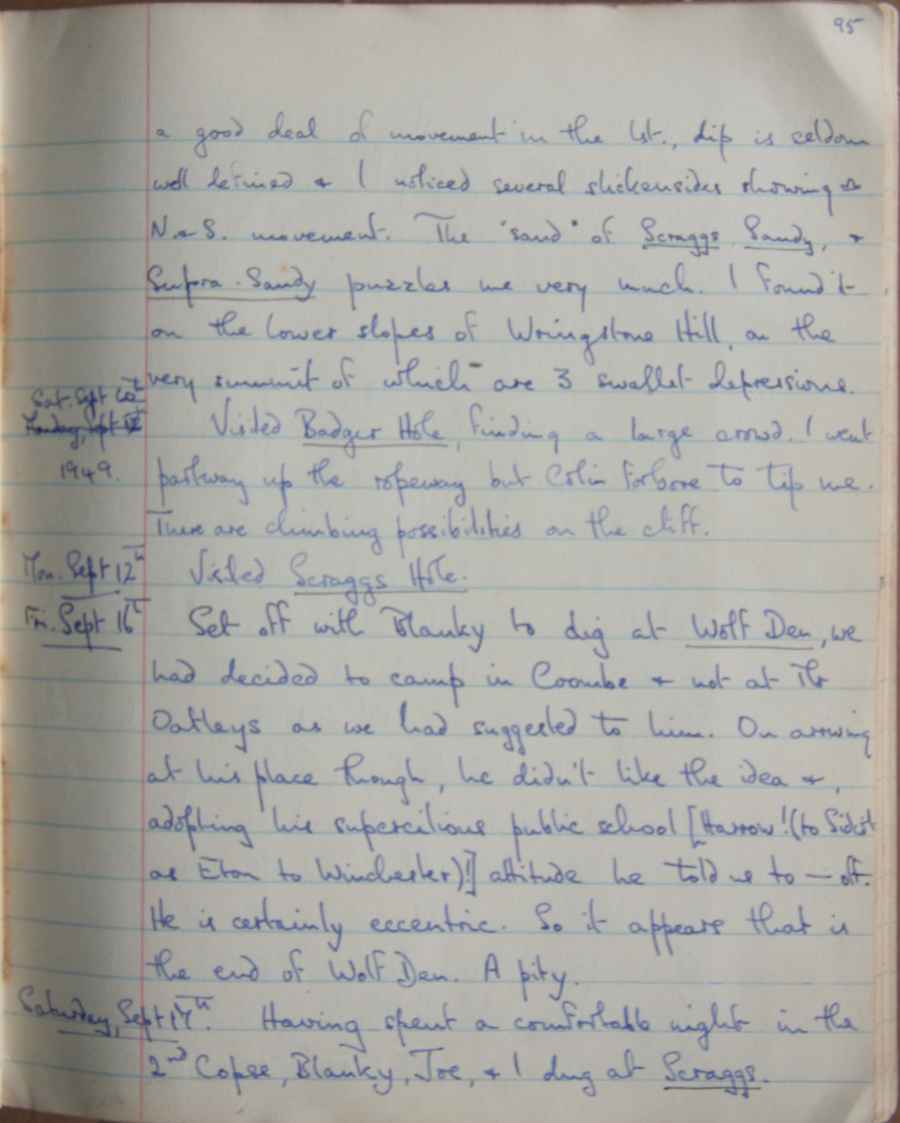 95
a good deal of movement in the lst., dip is seldom
well defined & I noticed several slickensides showing a
N. & S. movement. The "sand" of Scraggs Sandy, &
Supra-Sandy puzzles me very much. I found it
on the lower slopes of Wringstone Hill, on the
very summit of which are 3 swallet depressions.
Sat. Sept 10th
1949.
Visited Badger Hole, finding a large crowd. I went
partway up the ropeway but Colin forbore to tip me.
There are climbing possibilities on the cliff.
Mon. Sept 12th Visited Scraggs Hole.
Fri. Sept 16th Set off with Blanky to dig at Wolf Den, we
had decided to camp in Coombe & not at Mr
Oatleys as we had suggested to him. On arriving
at his place though, he didn't like the idea &,
adopting his supercilious public school [Harrow! (to Sidcot
as Eton to Winchester)!] attitude he told us to — off.
He is certainly eccentric. So it appears that is
the end of Wolf Den. A pity.
Saturday, Sept 17th. Having spent a comfortable night in the
2nd Copse, Blanky, Joe, & I dug at Scraggs.